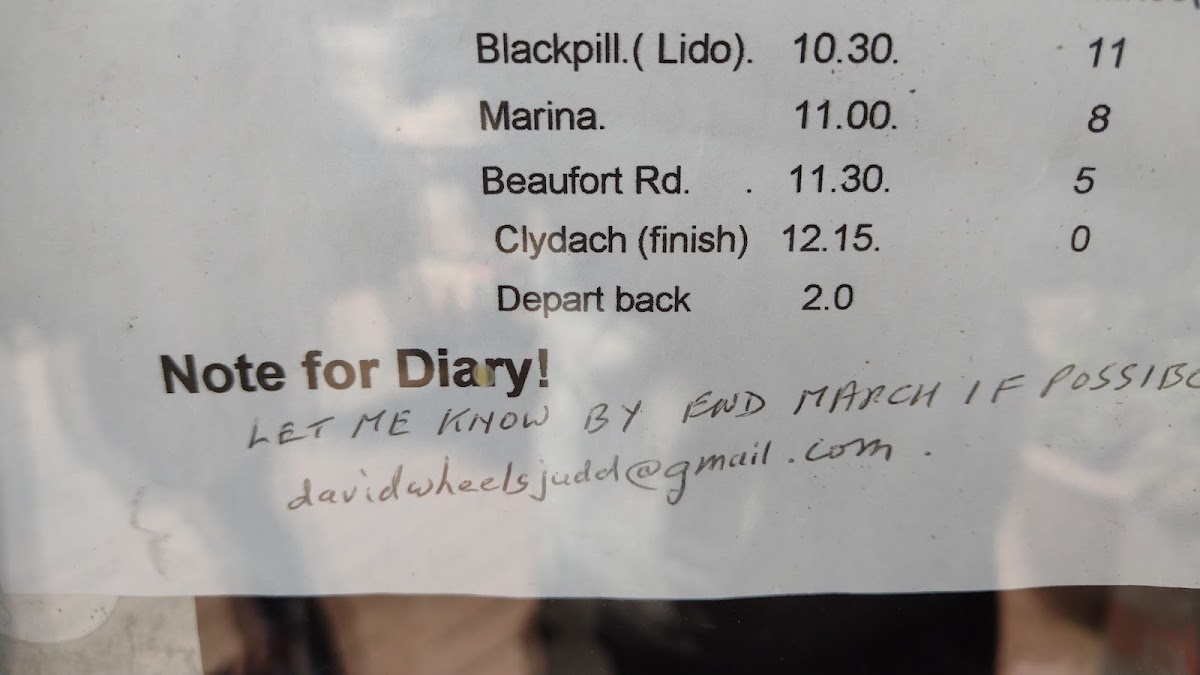 Blackpill.( Lido). 10.30. 11
Marina. 11.00. 8
Beaufort Rd. . 11.30. 5
Clydach (finish) 12.15. 0
Depart back 2.0
Note for Diary!
LET ME KNOW BY END MARCH IF
davidwheelsjudd@gmail.com.